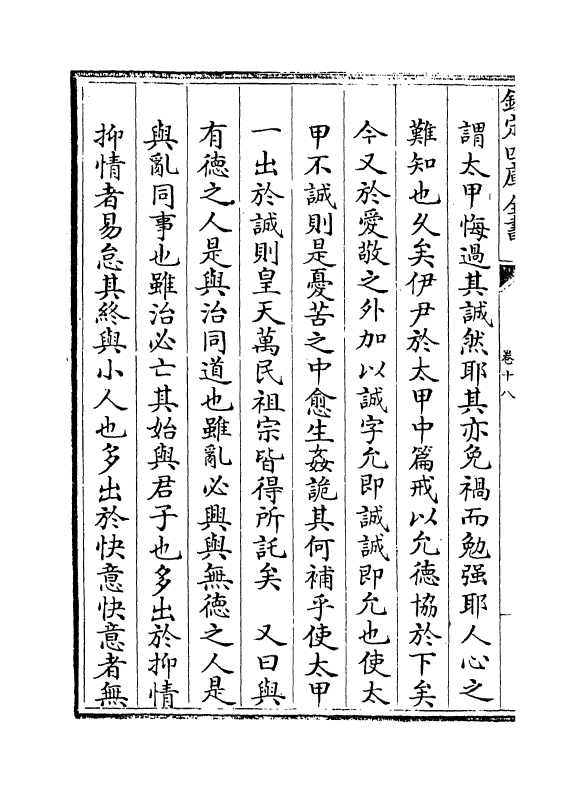 欽定四庫全書
卷十八
謂太甲悔過其誠然耶其亦免禍而勉强耶人心之
難知也久矣伊尹於太甲中篇戒以允德協於下矣
今又於愛敬之外加以誠字允即誠誠即允也使太
甲不誠則是憂苦之中愈生姦詭其何補乎使太甲
一出於誠則皇天萬民祖宗皆得所託矣　又曰與
有德之人是與治同道也雖亂必興與無德之人是
與亂同事也雖治必亡其始與君子也多出於抑情
抑情者易怠其終與小人也多出於快意快意者無